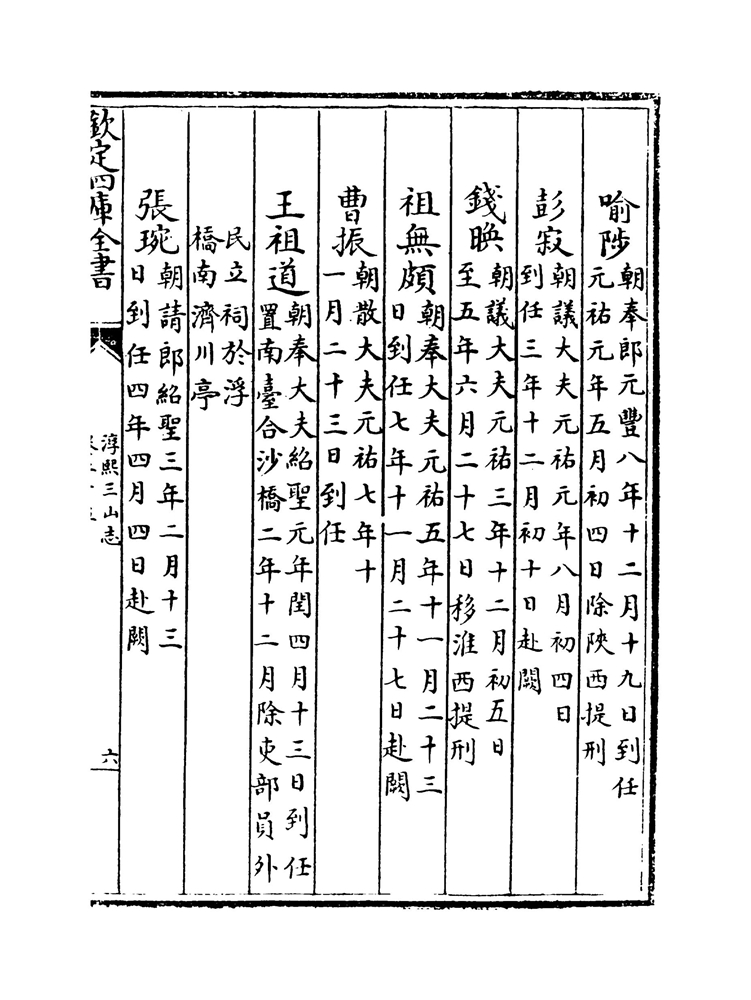 喻陟朝奉郎元豐八年十二月十九日到任
元祐元年五月初四日除陜西提刑
彭寂朝議大夫元祐元年八月初四日
到任三年十二月初十日赴闕
錢暎朝議大夫元祐三年十二月初五日
至五年六月二十七日移淮西提刑
祖無頗朝奉大夫元祐五年十一月二十三
日到任七年十一月二十七日赴闕
曹振朝散大夫元祐七年十
一月二十三日到任
王祖道朝奉大夫紹聖元年閏四月十三日到任
置南臺合沙橋二年十二月除吏部員外
民立祠於浮
橋南濟川亭
張琬朝請郎紹聖三年二月十三
日到任四年四月四日赴闕
欽定四庫全書
淳熙三山志
六